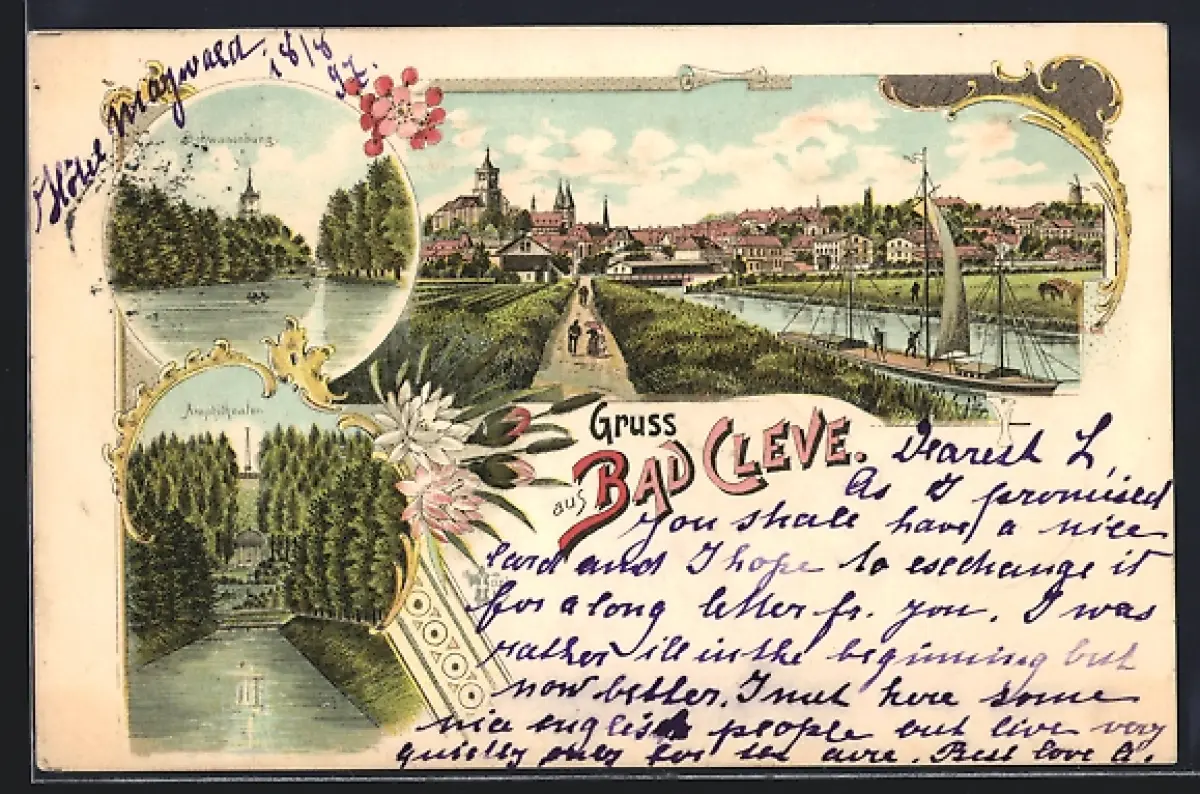 Hôtel Maywald 18/8 97.
Schwanenburg.
Amphitheater.
Gruss
aus BAD CLEVE.
Dearest L,
As I promised
you shall have a nice
card and I hope to exchange it
for a long letter fr. you. I was
rather ill in the beginning but
now better. I met here some
nice english people but live very
quietly only for the cure. Best love A.